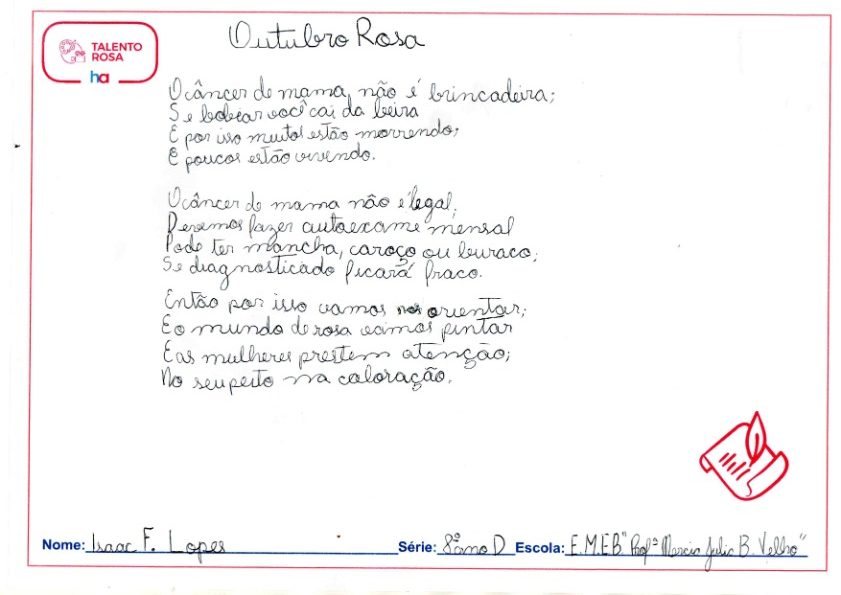 Outubro Rosa
TALENTO
ROSA
ha
O câncer de mama, não é brincadeira;
Se bobear você cai da beira
E por isso muitos estão morrendo;
E poucos estão vivendo.
O câncer de mama não é legal;
Devemos fazer autoexame mensal
Pode ter mancha, caroço ou buraco;
Se diagnosticado ficará fraco.
Então por isso vamos nos orientar;
E o mundo de rosa vamos pintar
E as mulheres prestem atenção;
No seu peito na coloração.
Nome: Isaac F. Lopes Série: 8º ano D Escola: E.M.E.B "Profª Mercia Julia B. Velho"